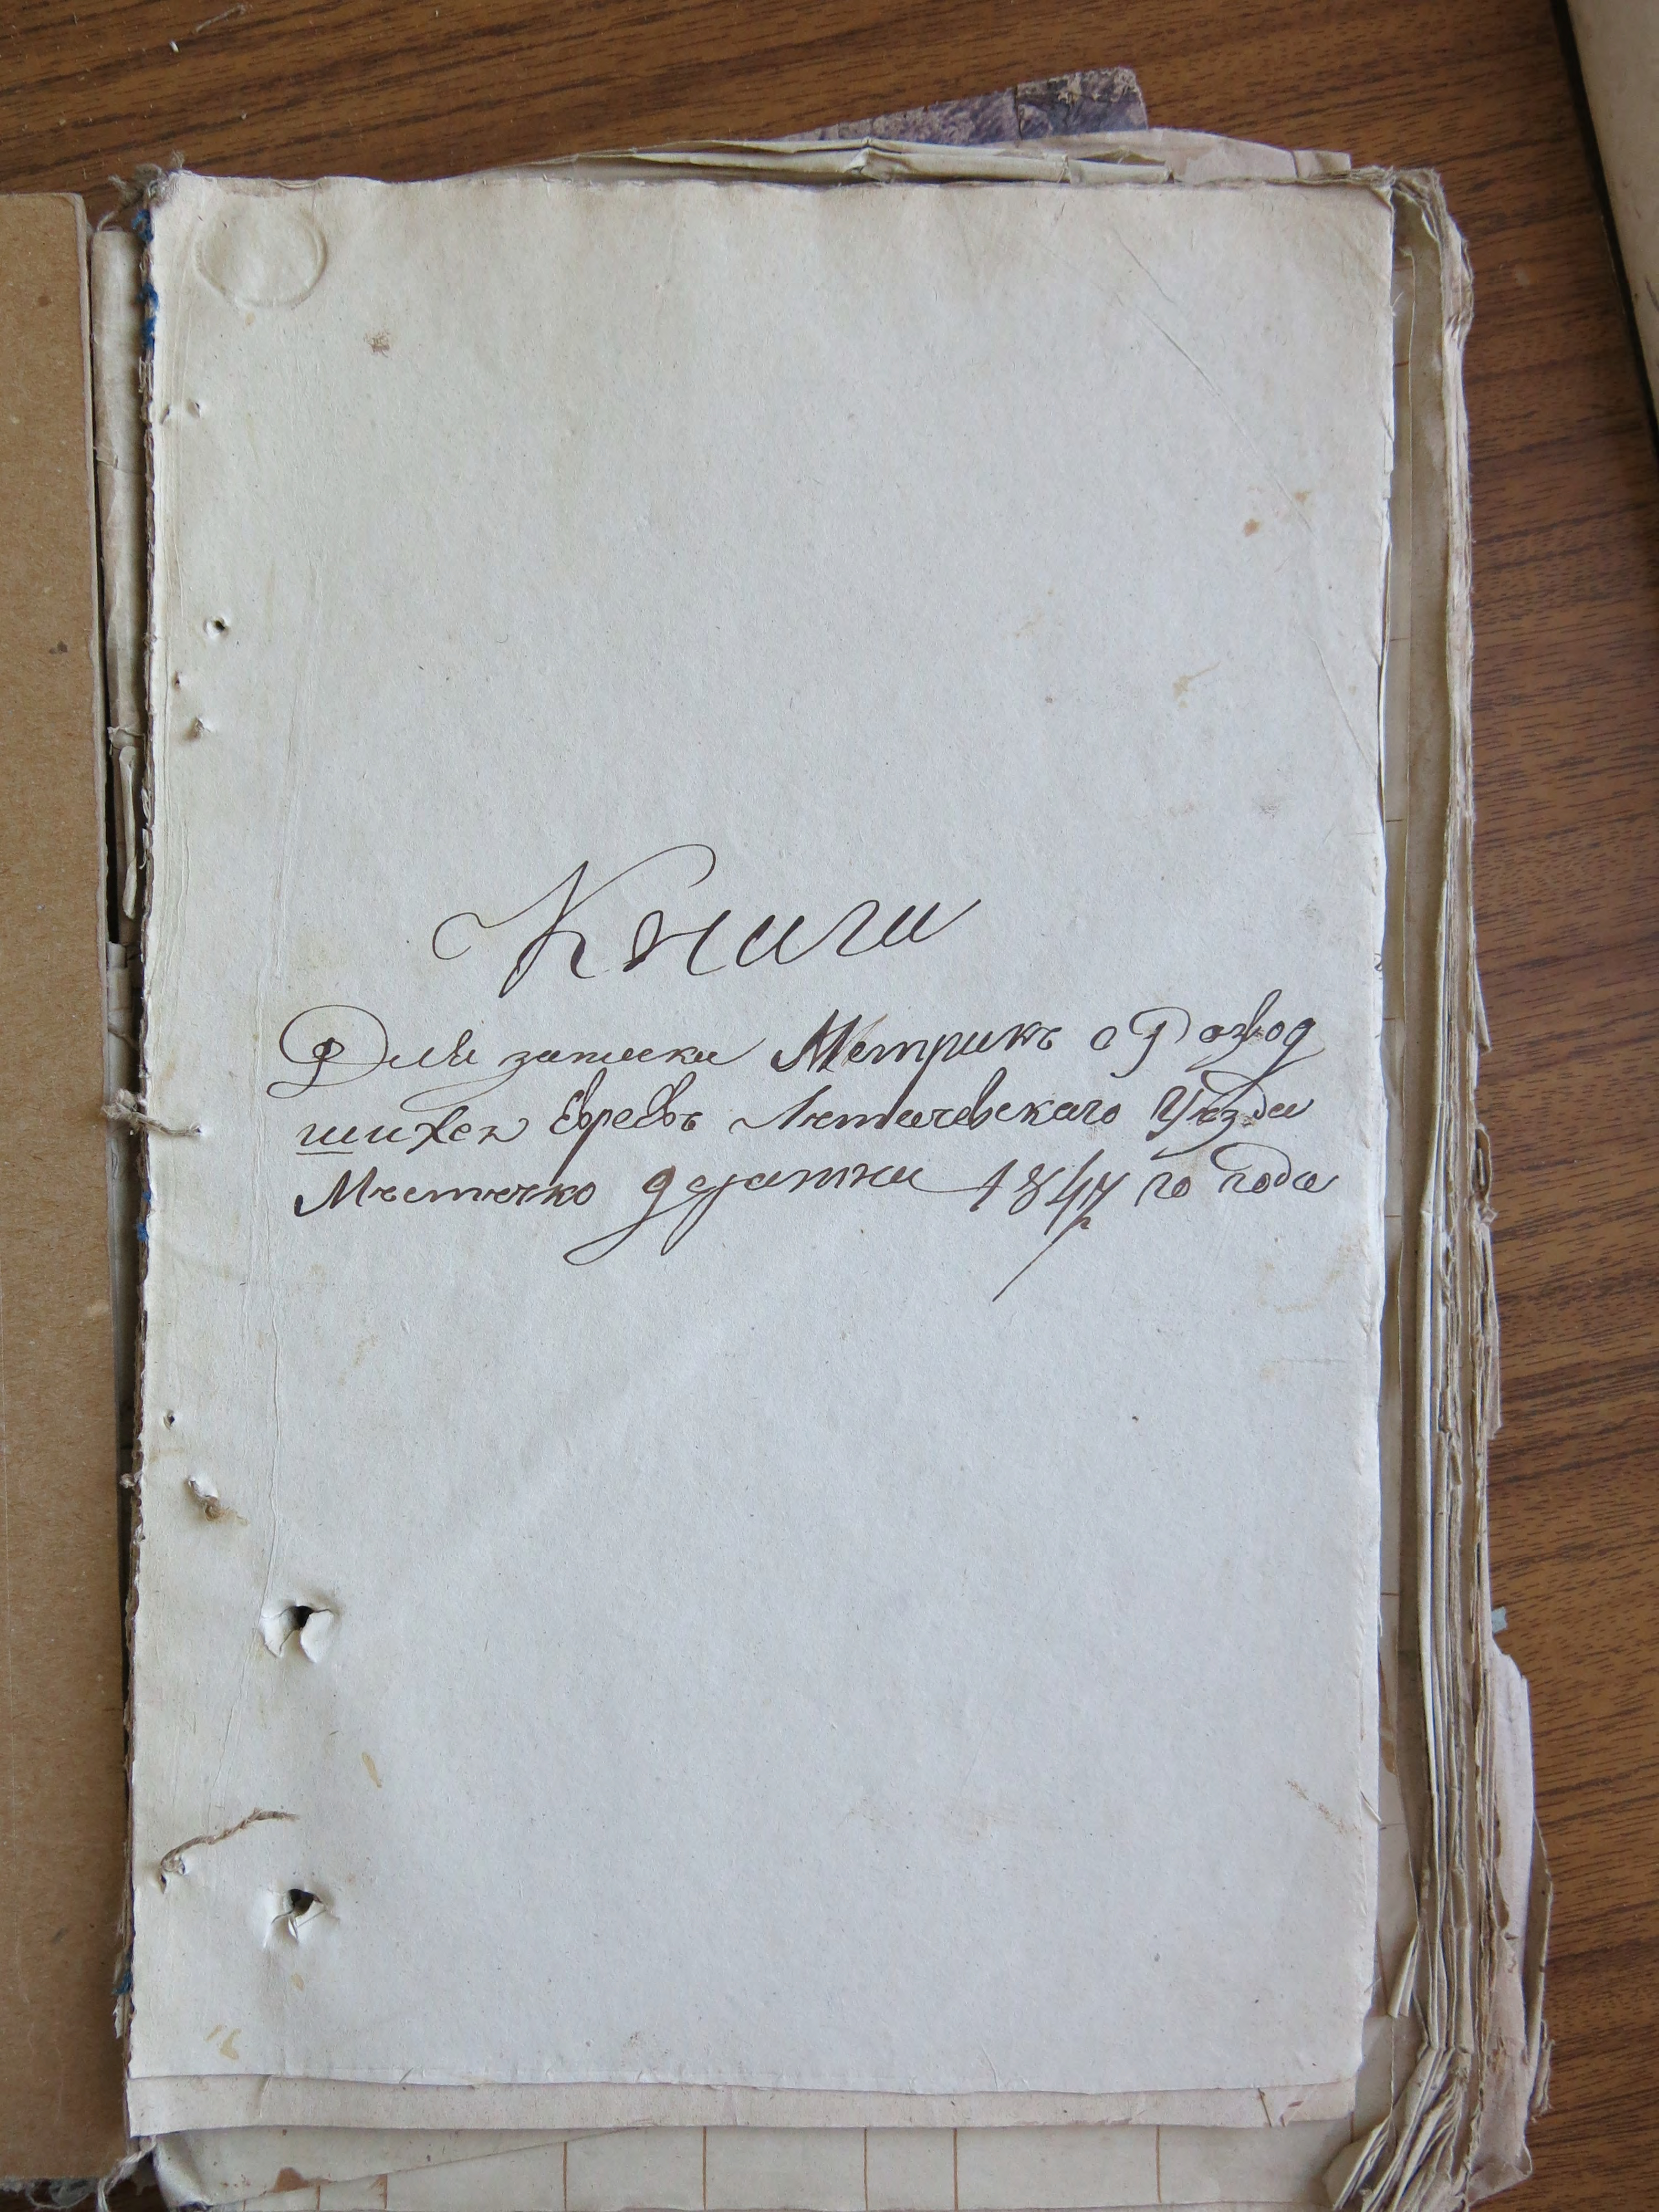 Книги
Для записки Метрикъ о Развод
шихся Евреевъ Летичевскаго Уезда
Местечко Деражни 1847 го года